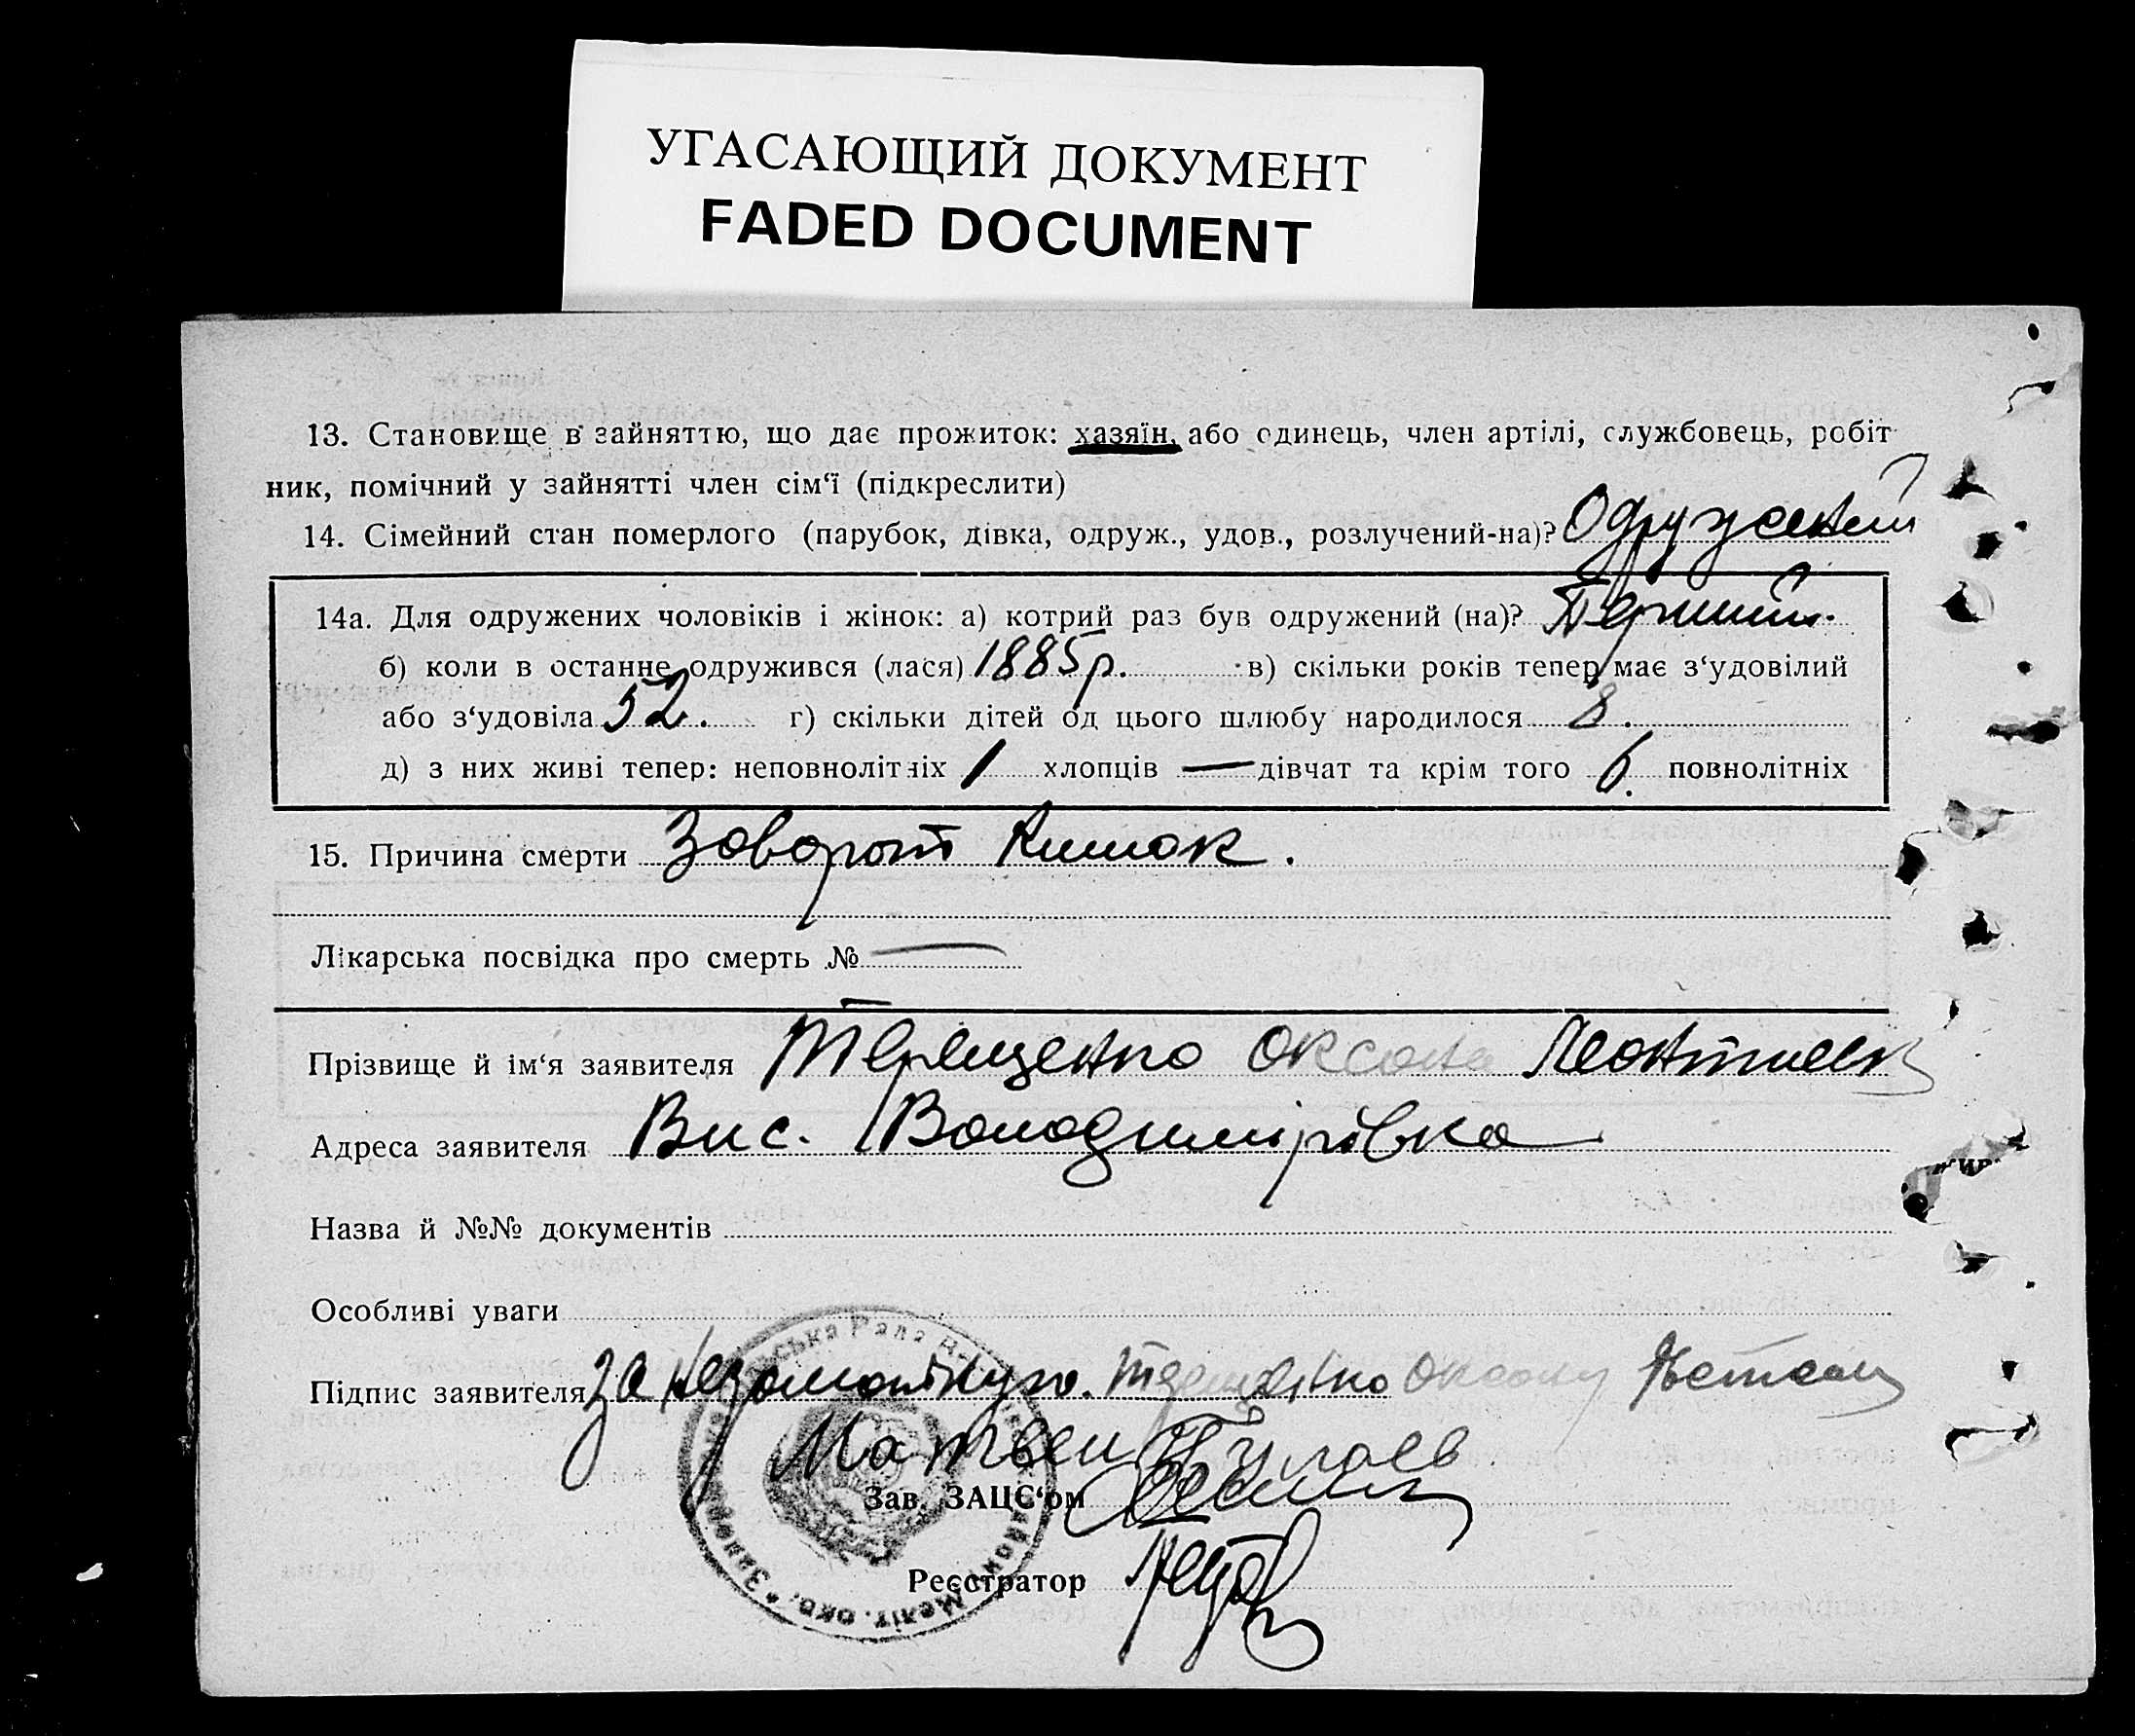 УГАСАЮЩИЙ ДОКУМЕНТ
FADED DOCUMENT
13. Становище в зайняттю, що дає прожиток: хазяїн, або одинець, член артілі, службовець, робіт
ник, помічний у зайнятті член сім‘ї (підкреслити)
14. Сімейний стан померлого (парубок, дівка, одруж., удов., розлучений-на)? Одружений
14а. Для одружених чоловіків і жінок: а) котрий раз був одружений (на)? Перший.
б) коли в останнє одружився (лася) 1885 р. в) скільки років тепер має з‘удовілий
або з‘удовіла 52. г) скільки дітей од цього шлюбу народилося 8.
д) з них живі тепер: неповнолітніх 1 хлопців — дівчат та крім того 6. повнолітніх
15. Причина смерти Заворот Кишок.
Лікарська посвідка про смерть № —
Прізвище й ім‘я заявителя Терещенко Оксана
Адреса заявителя Вис. Володимирівка
Назва й №№ документів
Особливі уваги
Підпис заявителя За Терещенко Оксану
Матвей
Зав. ЗАЦС‘ом
Реєстратор